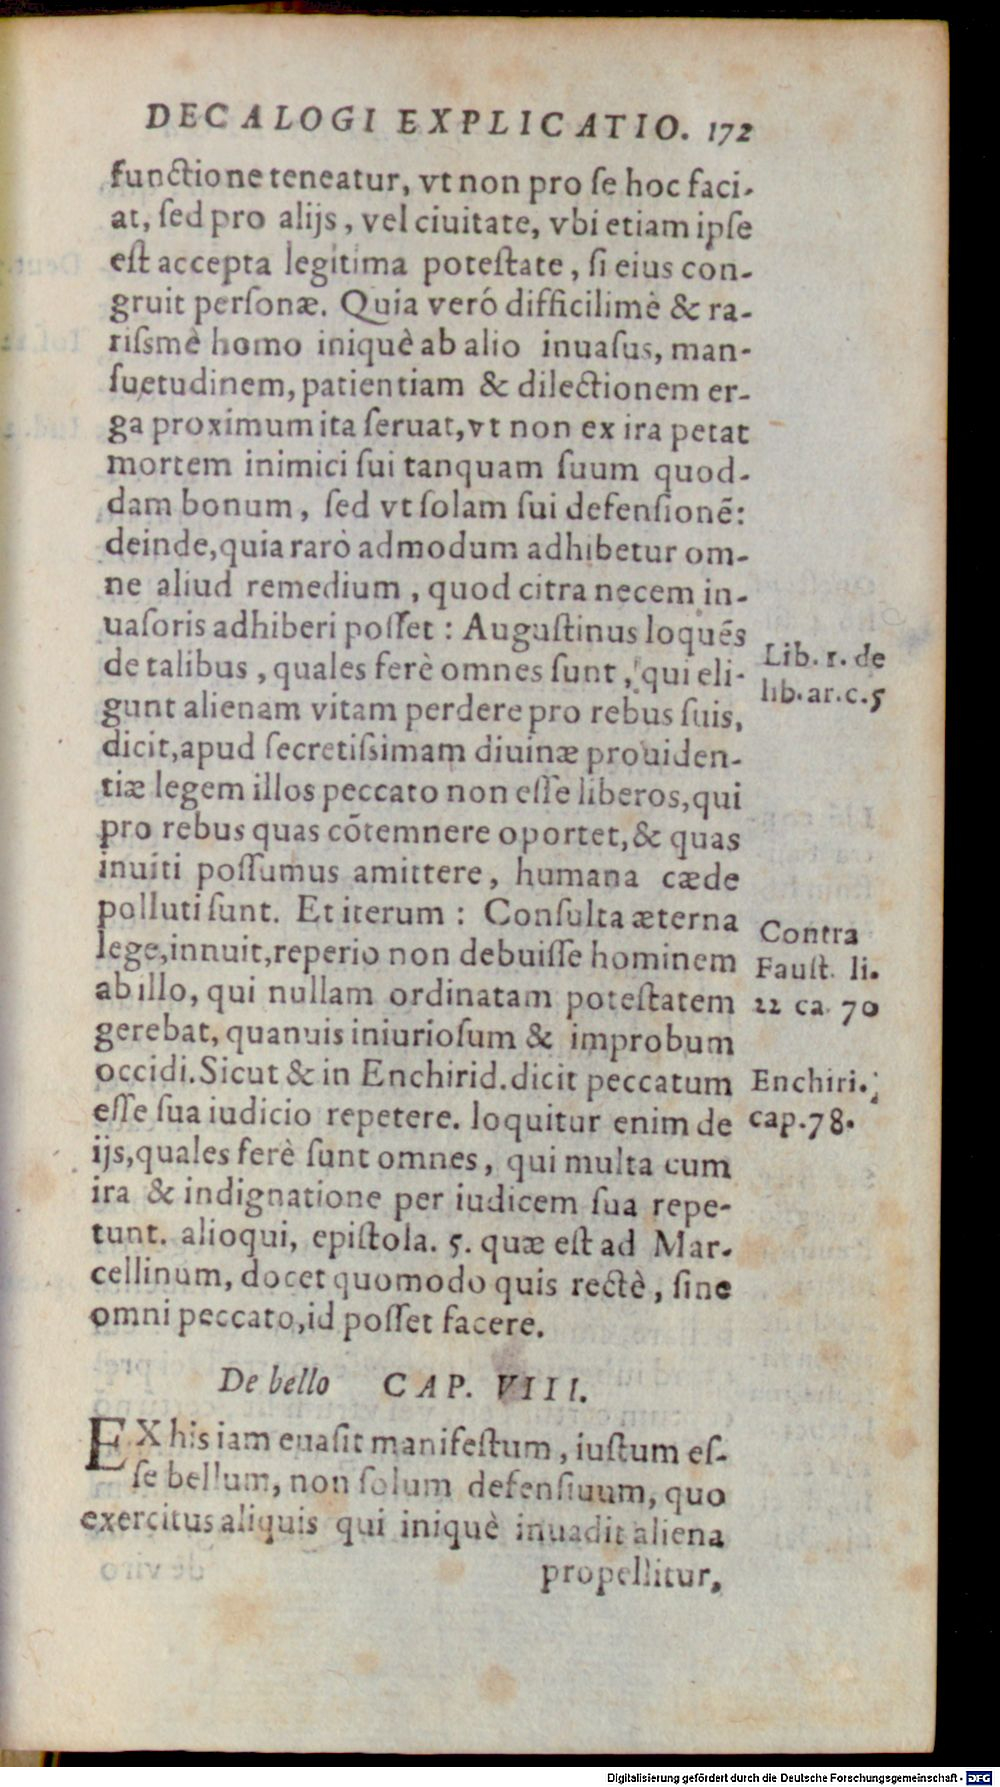 DECALOGI EXPLICATIO. 172
functione teneatur, vt non pro se hoc faci-
at, sed pro alijs, vel ciuitate, vbi etiam ipse
est accepta legitima potestate, si eius con-
gruit personæ. Quia veró difficilimè & ra-
rissmè homo iniquè ab alio inuasus, man-
suetudinem, patientiam & dilectionem er-
ga proximum ita seruat, vt non ex ira petat
mortem inimici sui tanquam suum quod-
dam bonum, sed vt solam sui defensionē:
deinde, quia rarò admodum adhibetur om-
ne aliud remedium, quod citra necem in-
uasoris adhiberi posset: Augustinus loquēs
de talibus, quales ferè omnes sunt, qui eli-
gunt alienam vitam perdere pro rebus suis,
dicit, apud secretissimam diuinæ prouiden-
tiæ legem illos peccato non esse liberos, qui
pro rebus quas cōtemnere oportet, & quas
inuiti possumus amittere, humana cæde
polluti sunt. Et iterum: Consulta æterna
lege, innuit, reperio non debuisse hominem
ab illo, qui nullam ordinatam potestatem
gerebat, quanuis iniuriosum & improbum
occidi. Sicut & in Enchirid. dicit peccatum
esse sua iudicio repetere. loquitur enim de
ijs, quales ferè sunt omnes, qui multa cum
ira & indignatione per iudicem sua repe-
tunt. alioqui, epistola. 5. quæ est ad Mar-
cellinum, docet quomodo quis rectè, sine
omni peccato, id posset facere.
Lib. 1. de
lib. ar. c. 5
Contra
Faust. li.
22 ca. 70
Enchiri.
cap. 78.
De bello CAP. VIII.
EX his iam euasit manifestum, iustum es-
se bellum, non solum defensiuum, quo
exercitus aliquis qui iniquè inuadit aliena
propellitur,
Digitalisierung gefördert durch die Deutsche Forschungsgemeinschaft - DFG